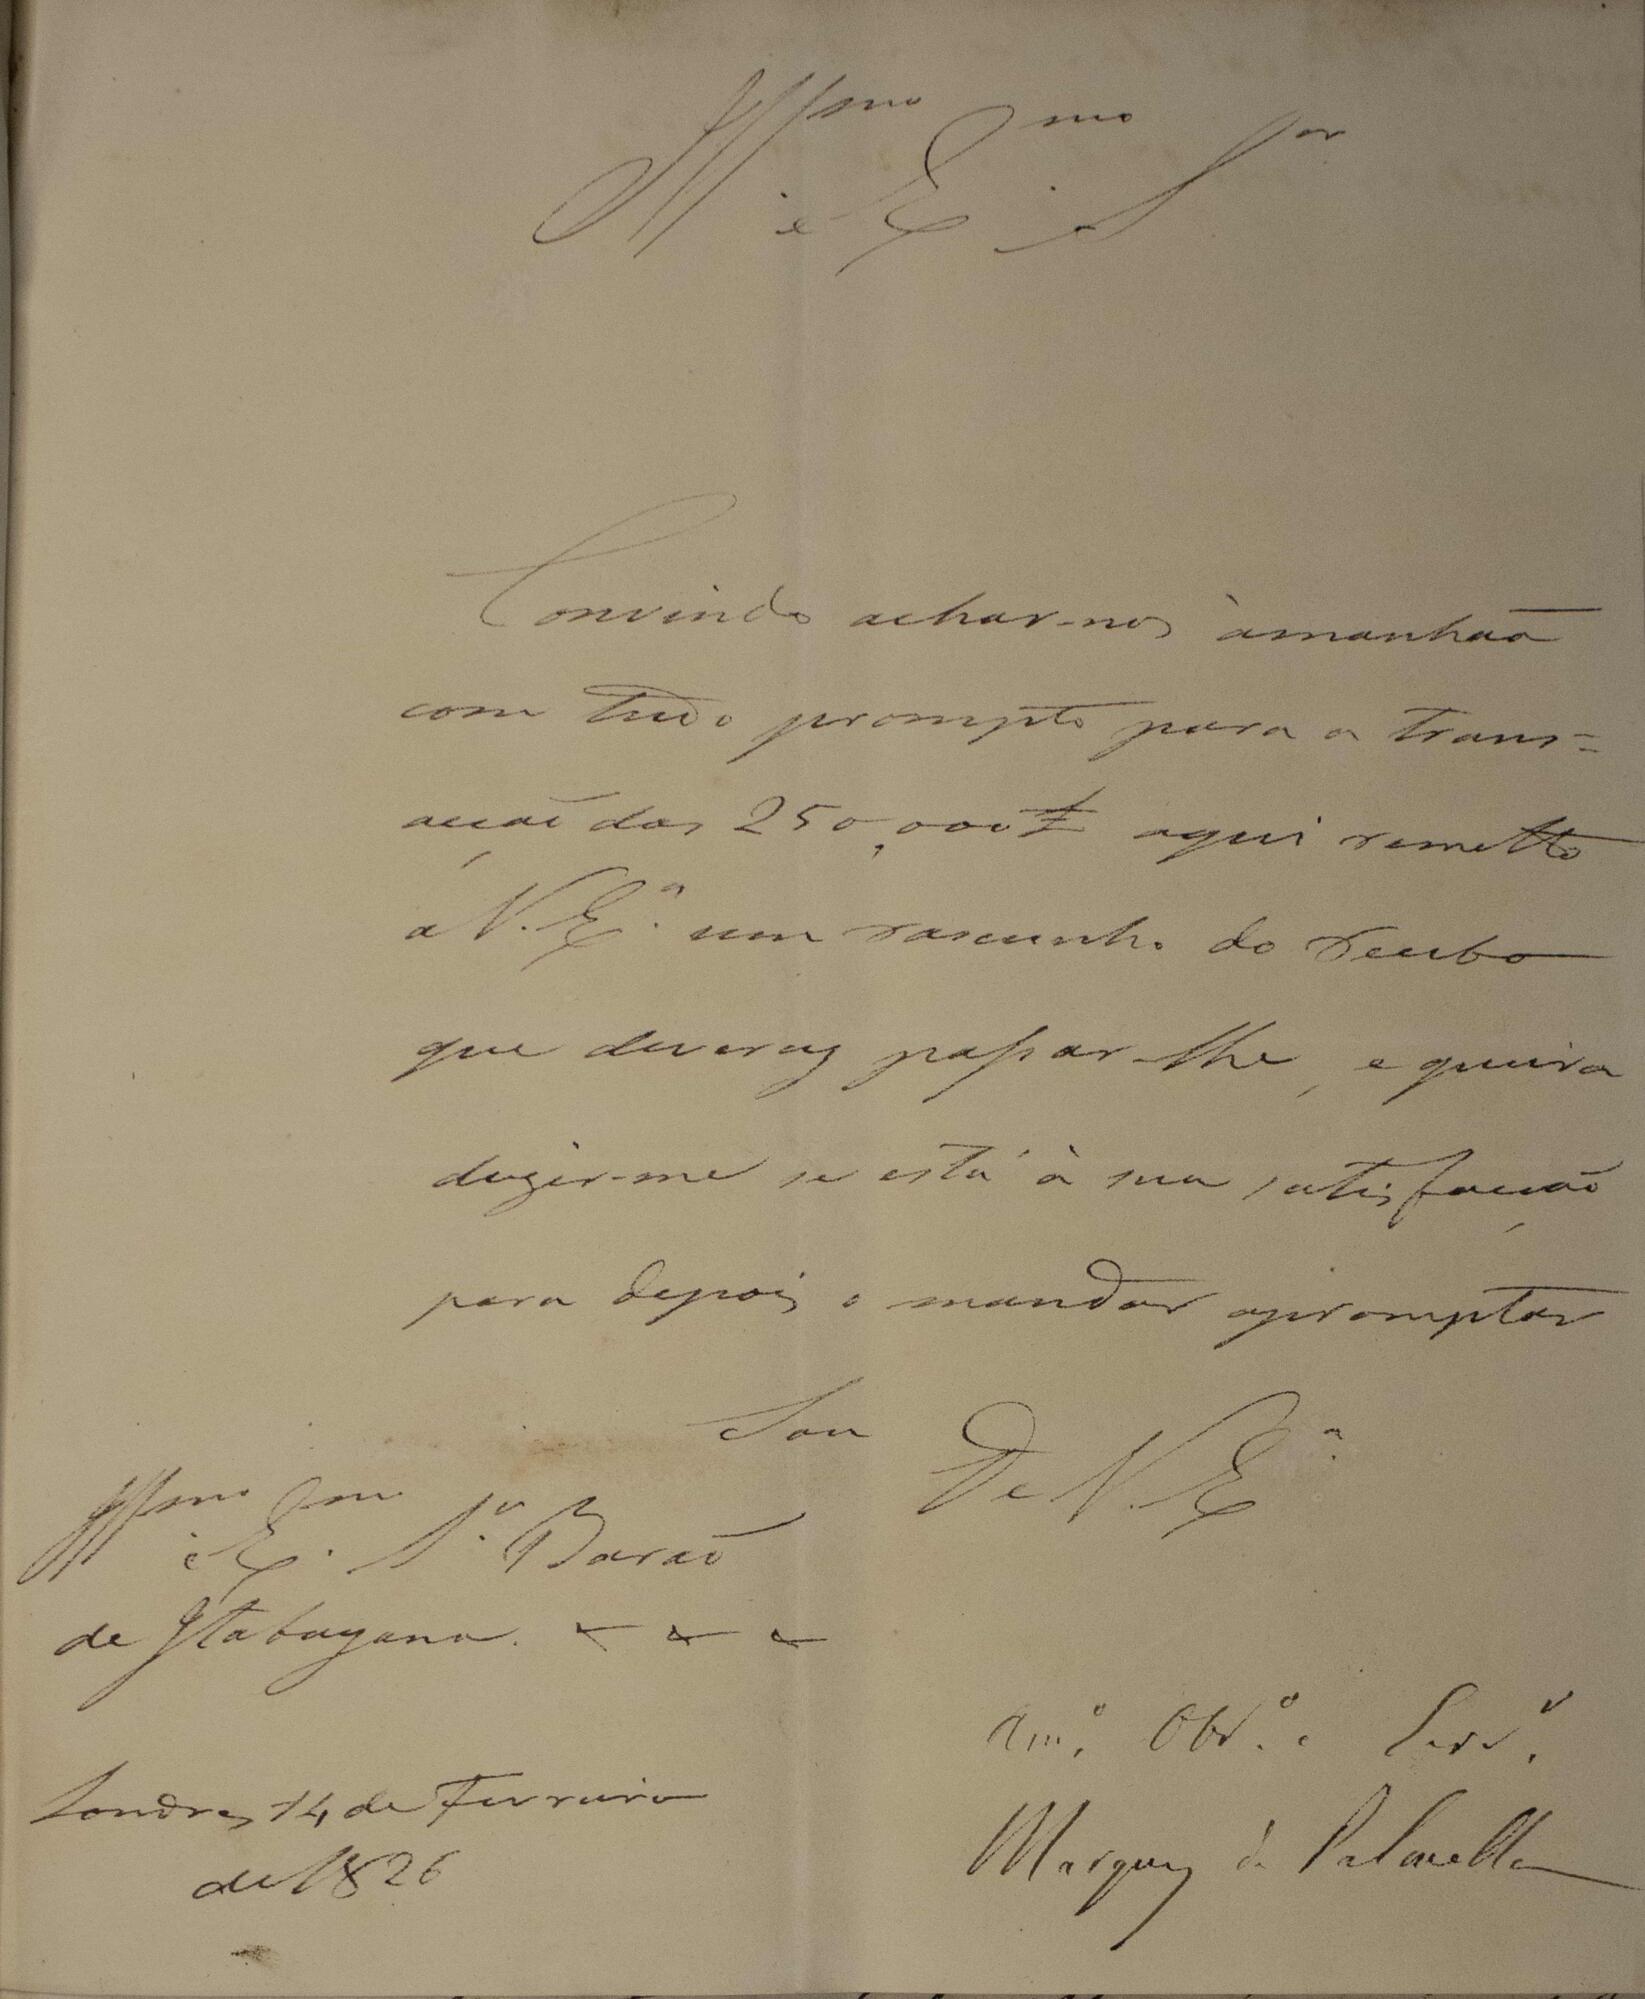 Illmo e Exmo Snor
Convindo achar-nos àmanhaã
com tudo prompto para a trans=
acçaõ das 250,000£ aqui remetto
a V. Exª. um rascunho do recibo
que deverey passar-lhe, e queira
dizer-me se está à sua satisfacçaõ
para depois o mandar apromptar
Sou De V. Exª.
Illmo e Exmo Sr. Baraõ
de Itabayana.
Amº. Obrº. e Servr.
Londres 14 de Fevreiro
de 1826
Marquez de Palmella